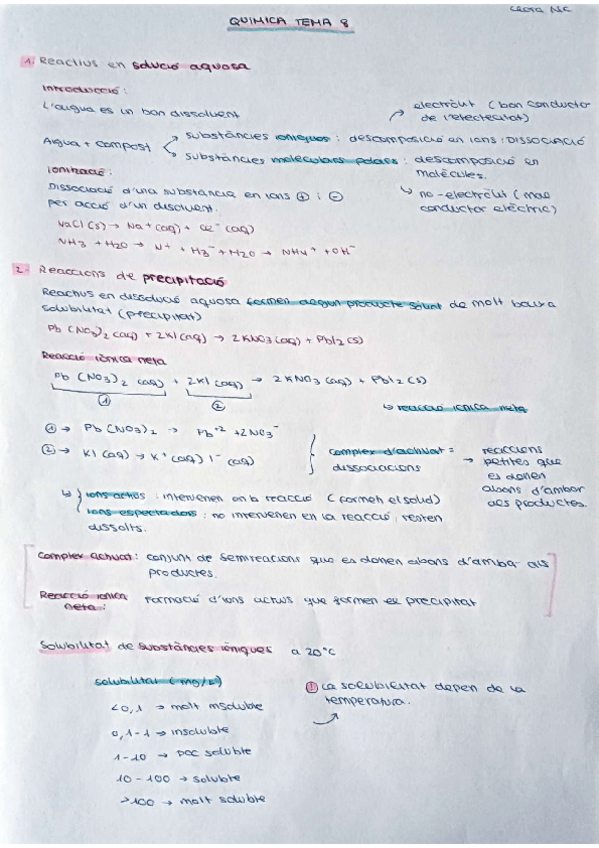 Clara N.C
QUIMICA TEMA 8
1. Reactius en solució aquosa
Introducció:
L'aigua es un bon dissolvent
electròlit (bon conductor de l'electecitat)
Aigua + compost
substàncies iòniques: descomposició en ions: DISSOCIACIÓ
substàncies moleculars polars: descomposició en molècules.
no-electròlit (mal conductor elèctric)
Ionització:
Dissociació d'una substància en ions ⊕ i ⊖
per acció d'un disolvent.
NaCl (s) → Na+ (aq) + Cl⁻ (aq)
NH3 + H2O → N+ + H3⁻ + H2O → NH4+ + OH⁻
2. Reaccions de precipitació
Reactius en dissolució aquosa formen algun producte sòlid de molt baixa
solubilitat (precipitat)
Pb (NO3)2 (aq) + 2KI (aq) → 2KNO3 (aq) + PbI2 (s)
Reacció iònica neta
Pb (NO3)2 (aq) + 2KI (aq) → 2KNO3 (aq) + PbI2 (s)
① ②
↳ reacció iònica neta
① → Pb (NO3)2 → Pb+2 + 2NO3⁻
② → KI (aq) → K+ (aq) I⁻ (aq)
complex d'activat = dissociacions
→ reaccions petites que es donen abans d'ambar als productes.
↳ ions actius: intervenen en la reacció (formen el sòlid)
ions espectadors: no intervenen en la reacció, resten
dissolts.
Complex activat: conjunt de semireacions que es donen abans d'ambar als
productes.
Reacció iònica neta: Formació d'ions actius que formen el precipitat
Solubilitat de substàncies iòniques a 20°C
solubilitat (mg/L)
! La solubilitat depen de la
temperatura.
<0,1 → molt insoluble
0,1-1 → insoluble
1-10 → poc soluble
10-100 → soluble
>100 → molt soluble